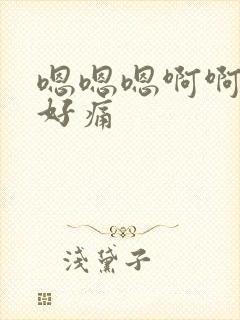 嗯嗯嗯啊啊
好痛
浅黛子